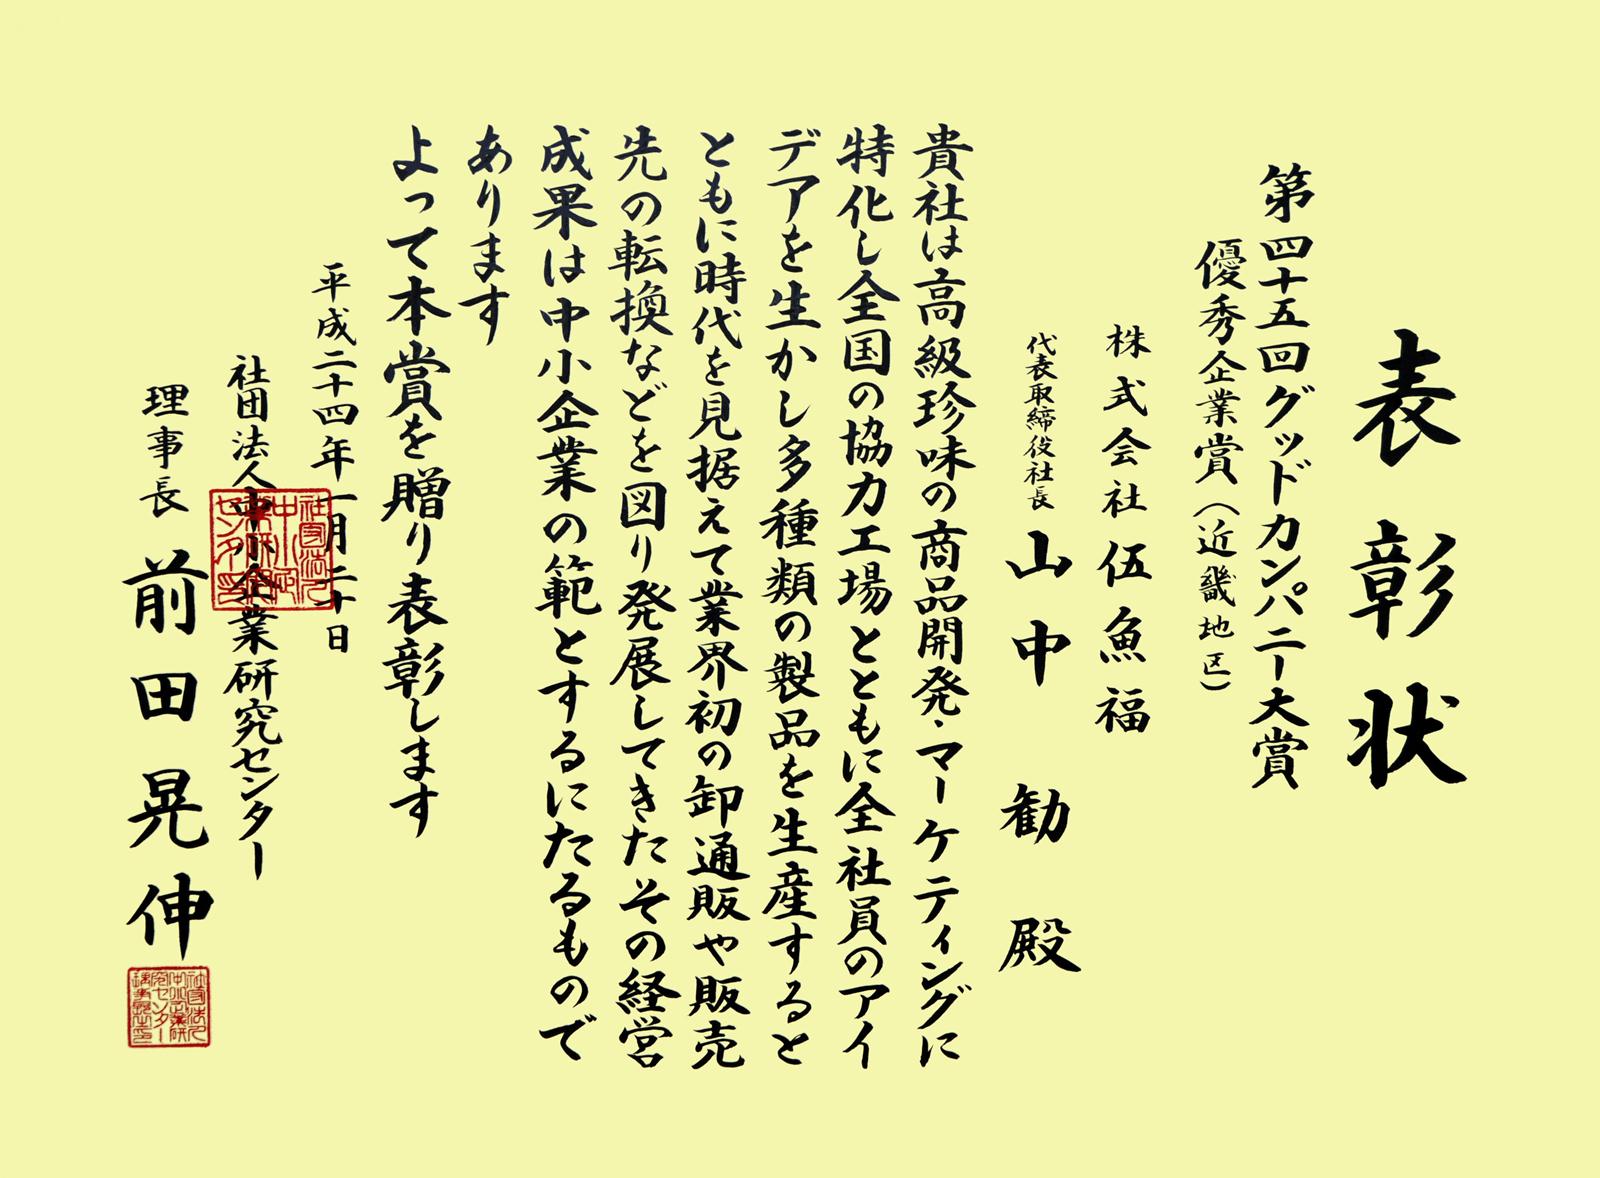 表彰状
第四十五回グッドカンパニー大賞
優秀企業賞（近畿地区）
株式会社伍魚福
代表取締役社長 山中 勧 殿
貴社は高級珍味の商品開発・マーケティングに
特化し全国の協力工場とともに全社員のアイ
デアを生かし多種類の製品を生産すると
ともに時代を見据えて業界初の卸通販や販売
先の転換などを図り発展してきたその経営
成果は中小企業の範とするにたるもので
あります
よって本賞を贈り表彰します
平成二十四年一月二十日
社団法人中小企業研究センター
理事長 前田晃伸